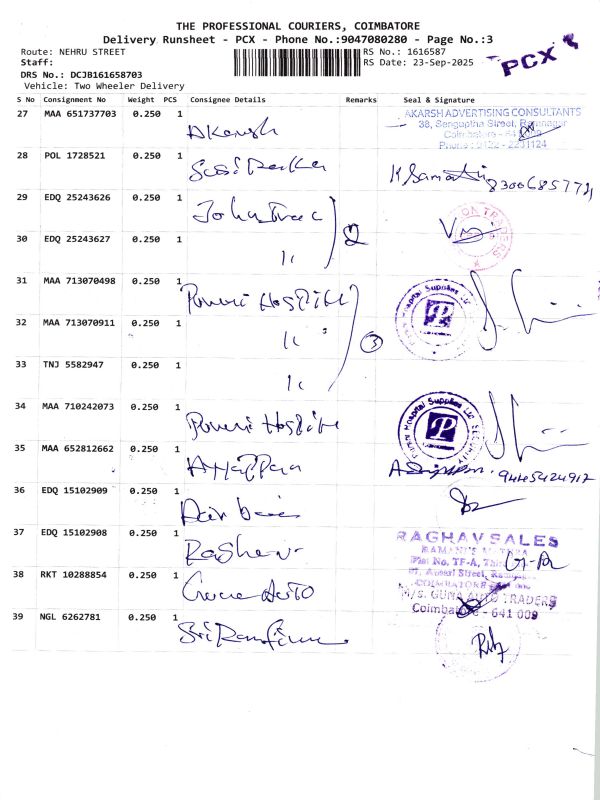 THE PROFESSIONAL COURIERS, COIMBATORE
Delivery Runsheet - PCX - Phone No.:9047080280 - Page No.:3
Route: NEHRU STREET RS No.: 1616587
Staff: RS Date: 23-Sep-2025
PCX
DRS No.: DCJB161658703
Vehicle: Two Wheeler Delivery
S No Consignment No Weight PCS Consignee Details Remarks Seal & Signature
27 MAA 651737703 0.250 1 Akarsh
AKARSH ADVERTISING CONSULTANTS
38, Senguptha Street, Ramnagar
Coimbatore - 641 009
Phone : 0422 - 2231124
28 POL 1728521 0.250 1
8300685774
29 EDQ 25243626 0.250 1 John
30 EDQ 25243627 0.250 1 " 2
TRADERS
31 MAA 713070498 0.250 1
Hospital Supplies
32 MAA 713070911 0.250 1 "
33 TNJ 5582947 0.250 1 " 3
34 MAA 710242073 0.250 1
Hospital Supplies
SECURITY
35 MAA 652812662 0.250 1 Ayyappa
9445424912
36 EDQ 15102909 0.250 1
37 EDQ 15102908 0.250 1 Raghav
RAGHAV SALES
38 RKT 10288854 0.250 1 Guna Auto
COIMBATORE
M/S. GUNA AUTO TRADERS
Coimbatore - 641 009
39 NGL 6262781 0.250 1